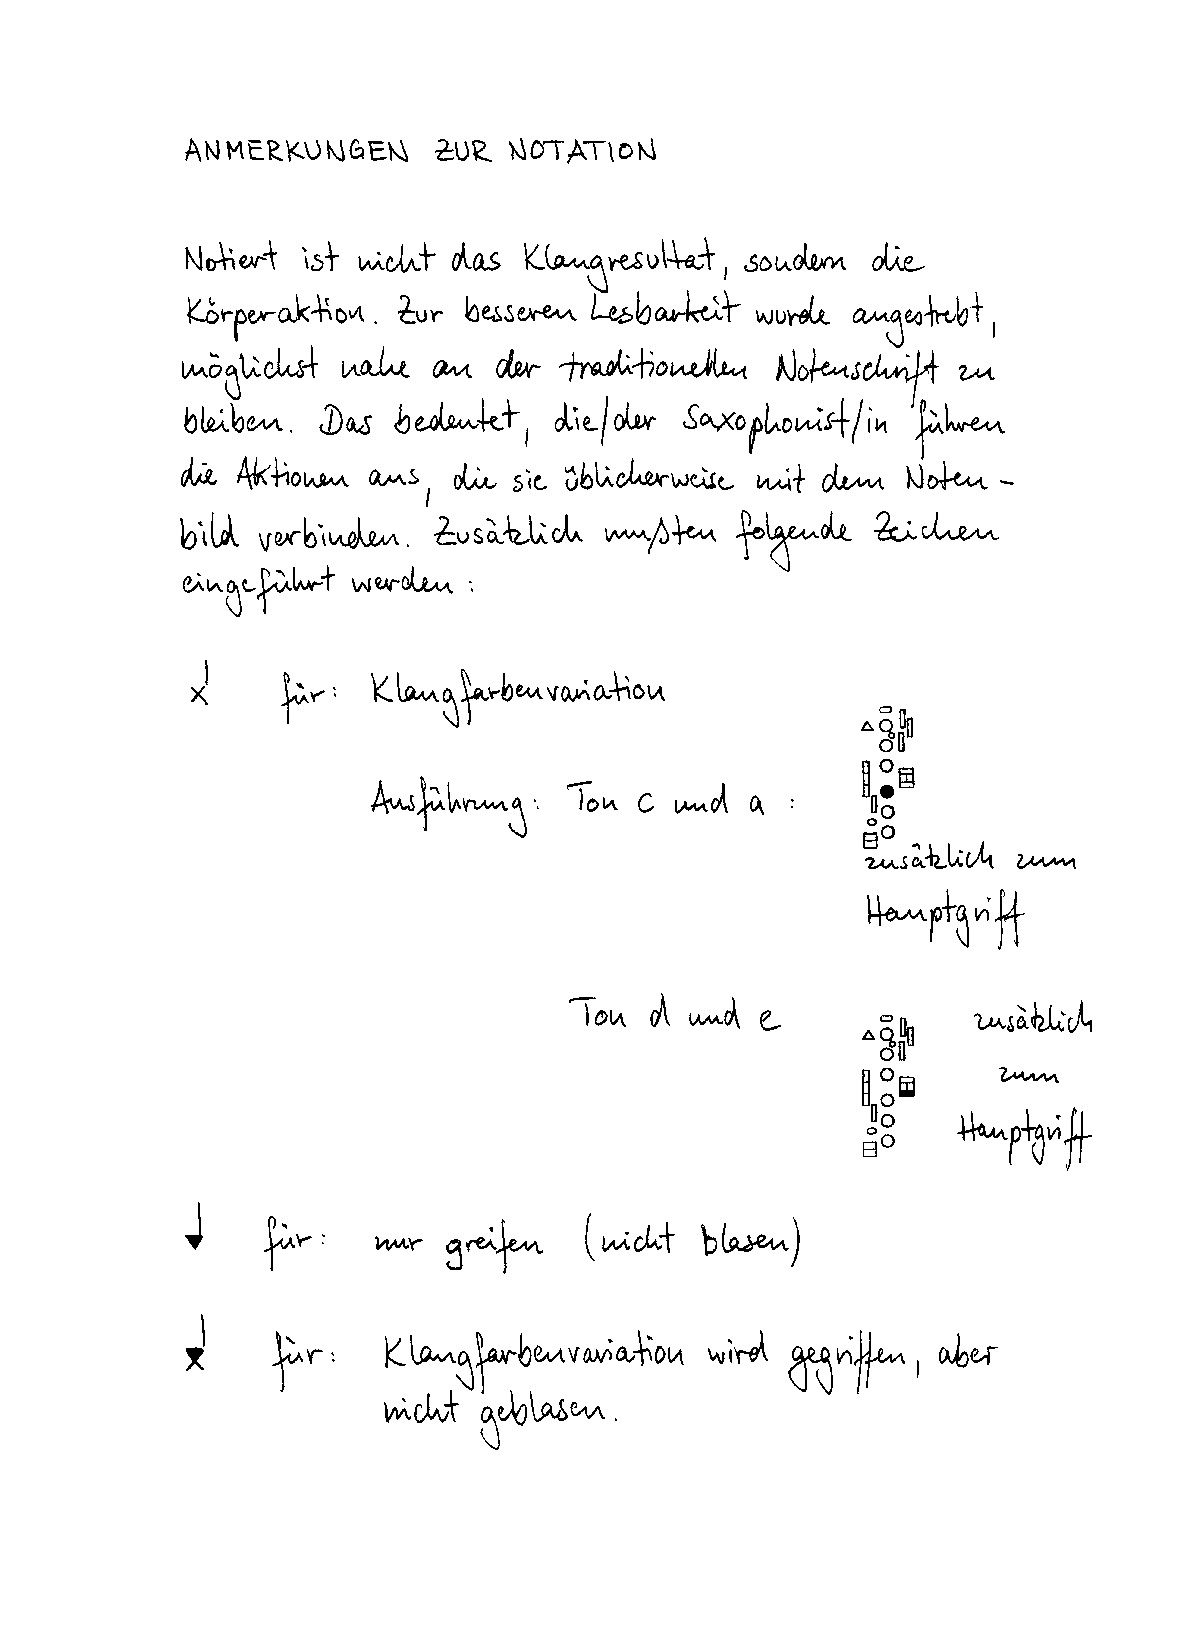 ANMERKUNGEN ZUR NOTATION
Notiert ist nicht das Klangresultat, sondern die
Körperaktion. Zur besseren Lesbarkeit wurde angestrebt,
möglichst nahe an der traditionellen Notenschrift zu
bleiben. Das bedeutet, die/der Saxophonist/in führen
die Aktionen aus, die sie üblicherweise mit dem Noten-
bild verbinden. Zusätzlich mußten folgende Zeichen
eingeführt werden:
für: Klangfarbenvariation
Ausführung: Ton c und a:
zusätzlich zum
Hauptgriff
Ton d und e zusätzlich
zum
Hauptgriff
für: nur greifen (nicht blasen)
für: Klangfarbenvariation wird gegriffen, aber
nicht geblasen.